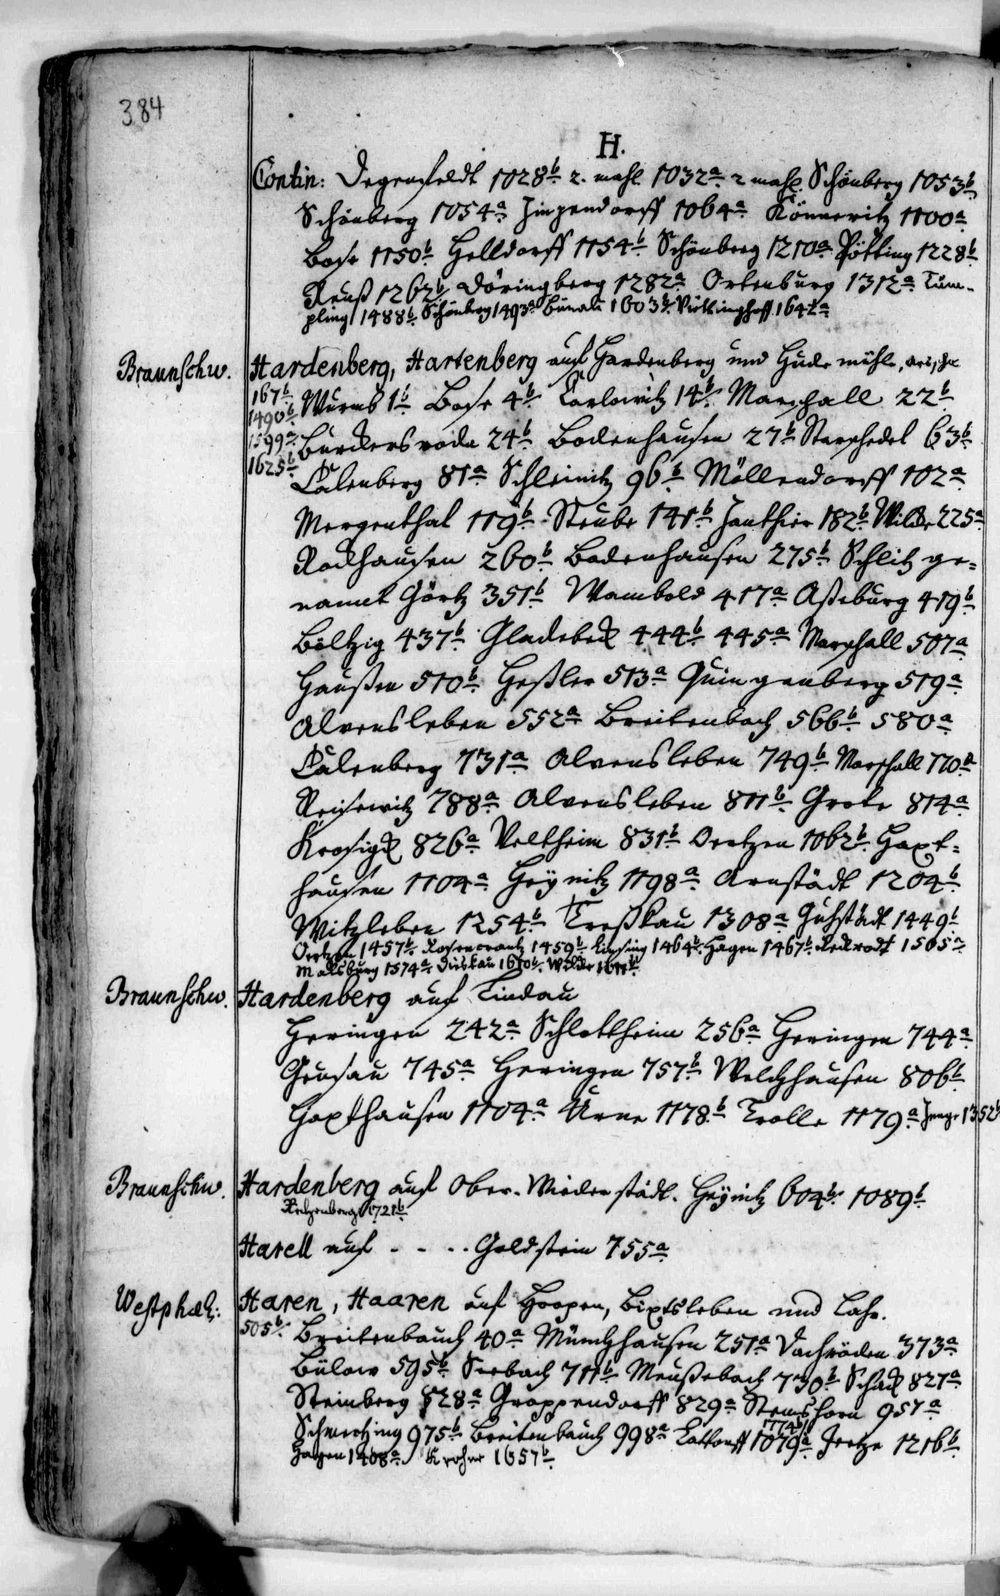 384
H.
Contin: Degenfeldt 1028b 2. mahl 1032a 2 mahl. Schönberg 1053b
Schönberg 1054a Zinzendorff 1064a Könneritz 1100a
Bose 1150b Helldorff 1154b Schönberg 1210a Pötting 1228b
Reuß 1262b Döringberg 1282a Ortenburg 1312a Tüm-
pling 1488b Schönberg 1493a Bünau 1603b Vittinghoff 1642a
Braunschw. Hardenberg, Hartenberg auf Hardenberg und Hude mühle,
167b Wurmb 1b Bose 4b Carlowitz 14b Marschall 22b
1490b
1599a Burckersroda 24b Bodenhausen 27b Starschedel 63b
1625b Calenberg 81a Schleinitz 96b Möllendorff 102a
Mergenthal 119b Steube 141b Janthier 182b Wilde 225a
Rockhausen 260b Bodenhausen 275b Schlitz ge-
namt Görtz 351b Wambold 417a Aßeburg 419b
Böltzig 437b Gladebeck 444b 445a Marschall 507a
Haußen 510b Heßler 513a Quingenberg 519a
Alvensleben 552a Breitenbach 566b 580a
Calenberg 731a Alvensleben 749b Marschall 770a
Reisewitz 788a Alvensleben 811b Grote 814a
Krosigk 826a Veltheim 831b Oertzen 1062b Haxt-
hausen 1104a Heÿnitz 1198a Arnstädt 1204b
Witzleben 1254b Troßkau 1308a Guhstädt 1449b
Oertzen 1457b Rosencrantz 1459b 1464b Hagen 1467b 1505a
Malsburg 1574a Dieskau 1610b Wilde 1611b
Braunschw. Hardenberg auf Lindau
Heringen 242a Schlottheim 256a Heringen 744a
Geusau 745a Heringen 757b Welchhausen 806b
Haxthausen 1104a Urne 1178b Trolle 1179a 1352b
Braunschw. Hardenberg auf Ober-Wiederstädt. Heÿnitz 604b 1089b
1721b
Harell auf - - - . Goldstein 755a
Westphäl: Haren, Haaren auf Hoopen, Bixtsleben und Lahr.
505b Breitenbauch 40a Münchhausen 251a Vachröden 373a
Bülow 595b Seebach 711b Meußebach 730b Schack 827a
Steinberg 828a Grappendorff 829a Stemshorn 957a
1774b
Schmertzing 975b Breitenbauch 998a Lattorff 1079a Jeetze 1216b
Hagen 1408a Krosne 1657b